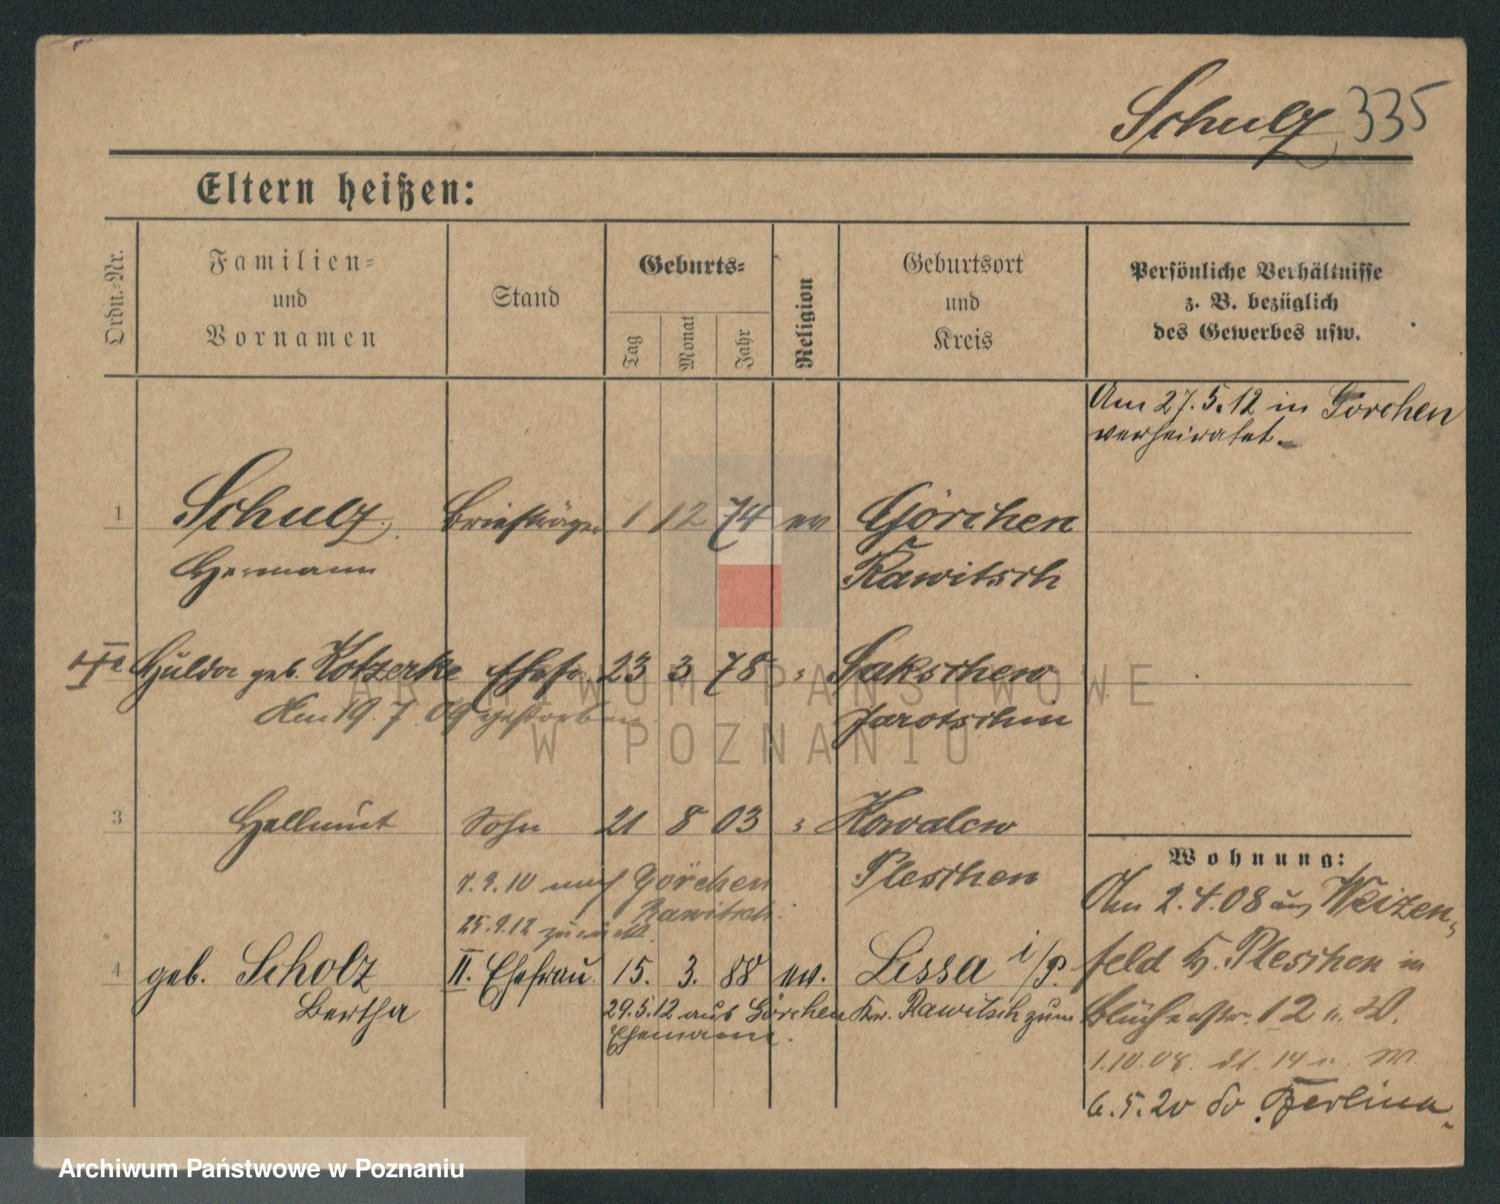 Schulz 335
Eltern heißen:
Ordn.-Nr.
Familien-
und
Vornamen
Stand
Geburts-
Tag
Monat
Jahr
Religion
Geburtsort
und
Kreis
Persönliche Verhältnisse
z. B. bezüglich
des Gewerbes usw.
Am 27.5.12 in Görchen
verheiratet.
1 Schulz Briefträger 1 12 74 ev Görchen
Hermann Rawitsch
Hulda geb. Kotzerke Ehefr. 23 3 78 Sakschew
Am 19.7.09 gestorben Jarotschin
3 Hellmut Sohn 21 8 03 Kowalew
Pleschen
7.9.10 nach Görchen
Rawitsch
25.9.12 zurück.
4 geb. Scholz II. Ehefrau. 15. 3. 88 ev. Lissa i/P.
Bertha
29.5.12 aus Görchen Kr. Rawitsch zum
Ehemann.
Wohnung:
Am 2.4.08 aus Weizen-
feld K. Pleschen in
Blücherstr. 12 u. W.
1.10.08. dt. 14 u. W.
6.5.20 do
ARCHIWUM PAŃSTWOWE
W POZNANIU
Archiwum Państwowe w Poznaniu